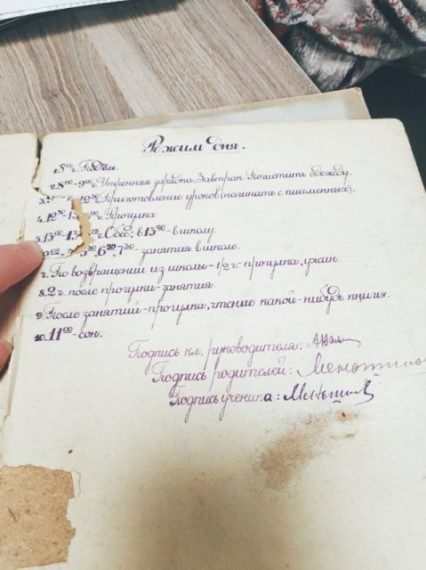 Режим дня.
1. 8⁰⁰. Подъём.
2. 8⁰⁰-9⁰⁰ Утренняя зарядка. Завтрак. Почистить одежду.
3. 12⁰⁰ Приготовление уроков (начинать с письменных).
4. 12⁰⁰ Прогулка
5. 13⁰⁰ Обед; в 13⁵⁰ - в школу.
занятия в школе.
7. По возвращении из школы - 1/2 г. - прогулка, ужин.
8. 2 г. после прогулки - занятия
9. После занятий - прогулка, чтение какой-нибудь книги.
10. 11⁰⁰ - сон.
Подпись кл. руководителя:
Подпись родителей:
Подпись ученика: